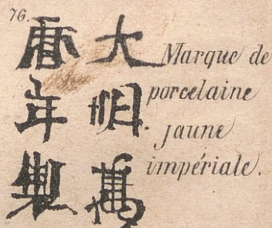 76.
大明萬
曆年製
Marque de
porcelaine
jaune
impériale.